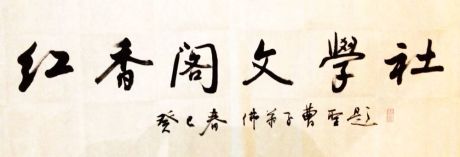 红香阁文學社
癸巳春 佛弟子曹聖題